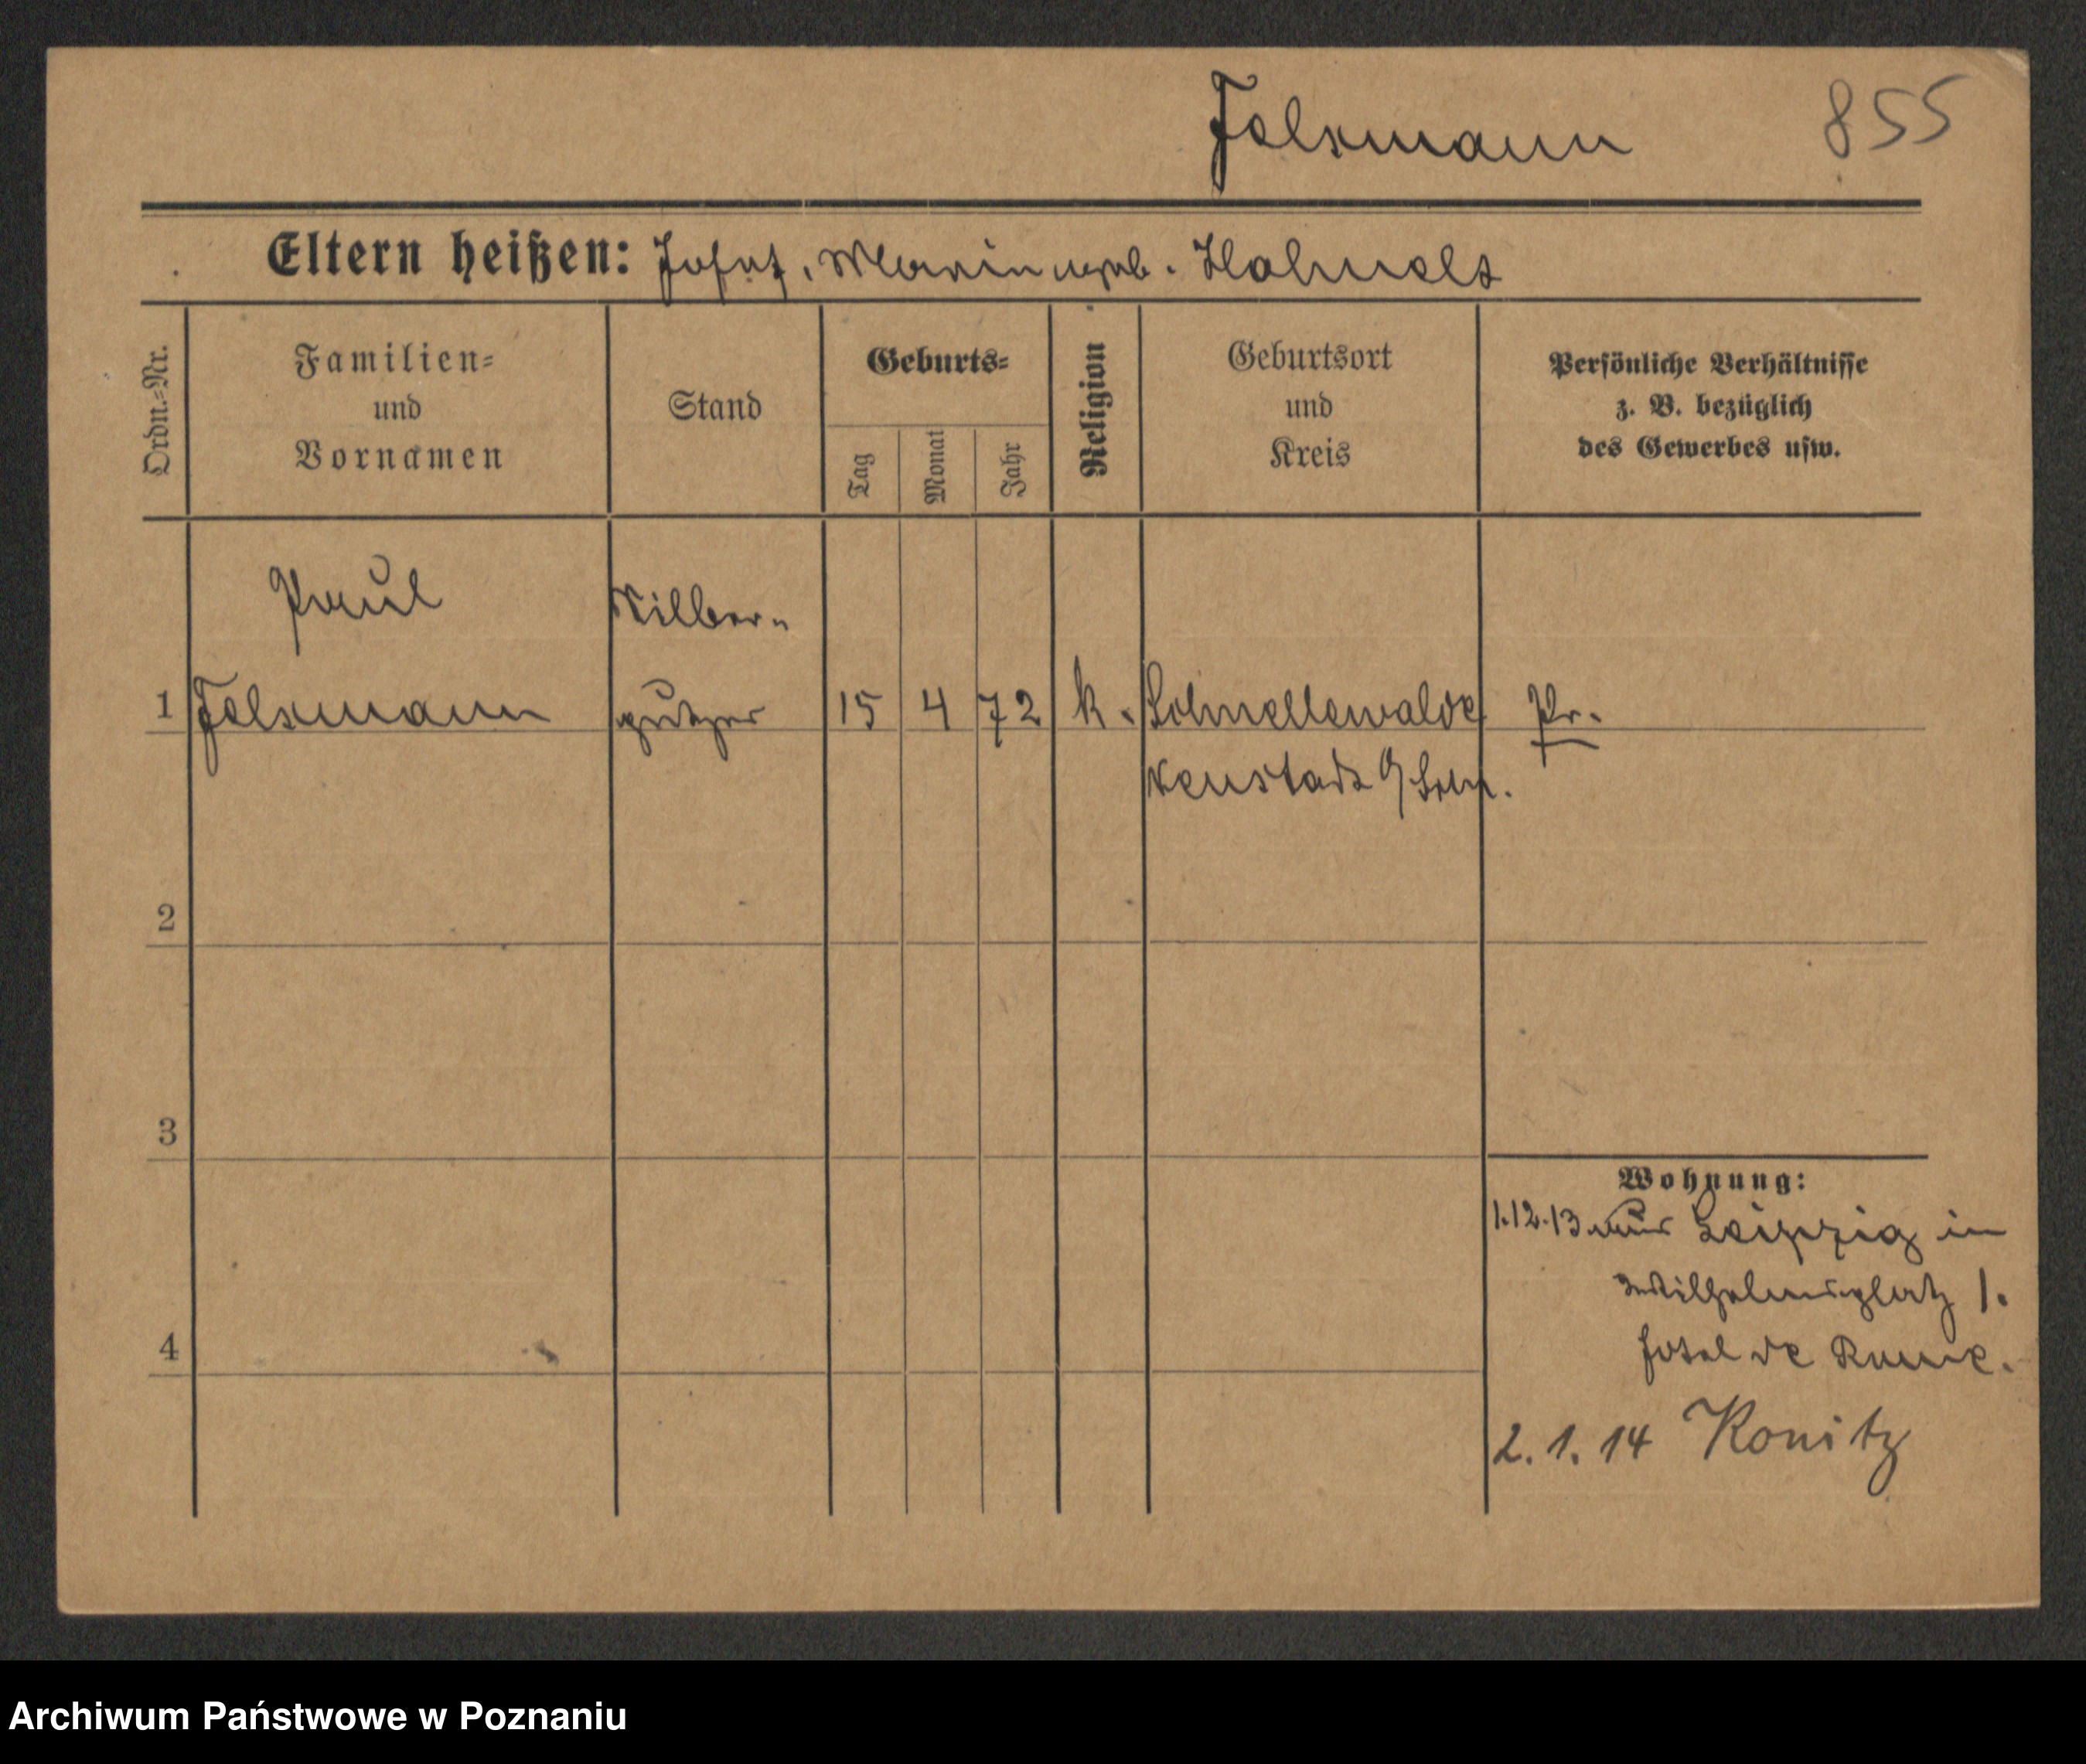 Felsmann 855
Eltern heißen: Josef, Marie geb. Hahnelt
Ordn.-Nr.
Familien-
und
Vornamen
Stand
Geburts-
Tag
Monat
Jahr
Religion
Geburtsort
und
Kreis
Persönliche Verhältnisse
z. B. bezüglich
des Gewerbes usw.
Paul Silber-
1 Felsmann putzer 15 4 72 k. Schnellewalde Pr.
Neustadt O/Schl.
2
3
4
Wohnung:
1.12.13 aus Leipzig in
Wilhelmsplatz 1.
Hotel de Rome.
2.1.14 Konitz
Archiwum Państwowe w Poznaniu